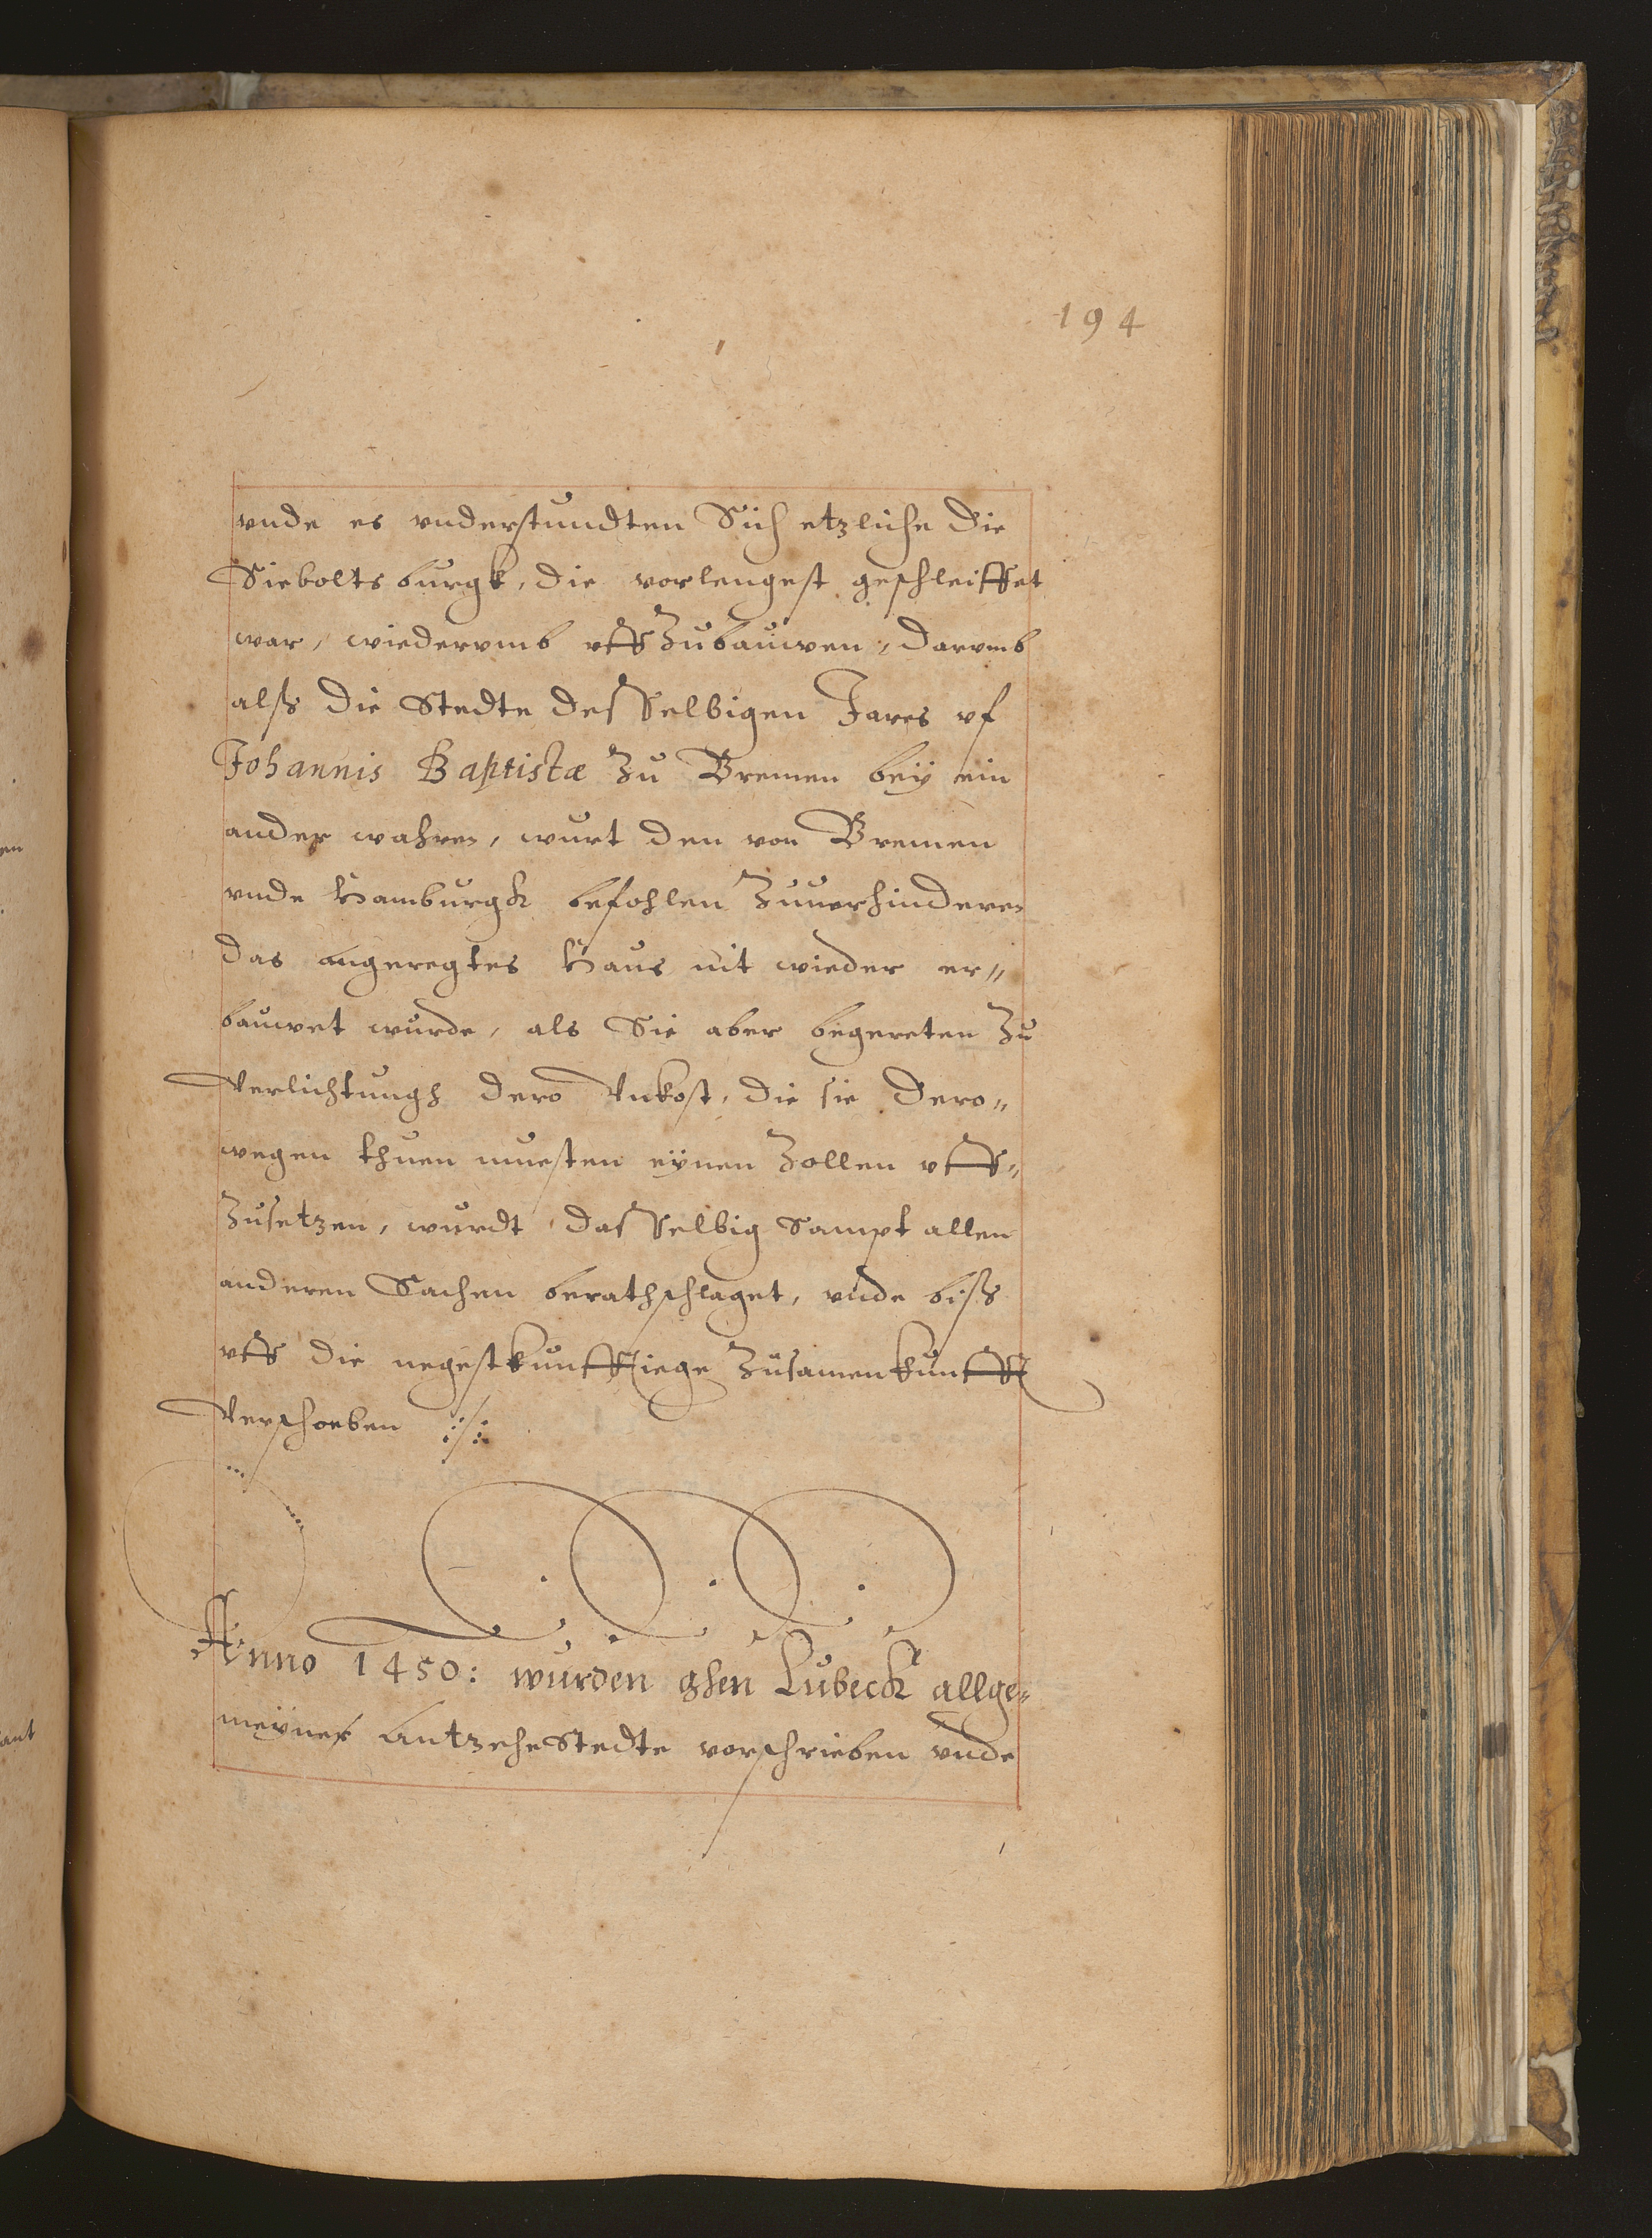 194
vnde es vnderstundten Sich etzliche die
Sieboltsburgk, die vorlengest geschleiffet
war, wiedervmb vffzubauwen, darvmb
alß die Stedte desselbigen Jares vf
Johannis Baptistæ zu Bremen bey ein
ander wahren, wurt den von Bremen
vnde Hamburgk befohlen zuuerhinderen
das angeregtes Haus nit wieder er„
bauwet wurde, als Sie aber begereten zu
Verlichtungh dero Vnkost, die sie dero„
wegen thuen muesten eynen Zollen vff„
zusetzen, wurdt dasselbig sampt allen
anderen Sachen berathschlaget, vnde biß
vff die negestkunfftiege zusamenkunfft
Verschoeben
Anno 1450: wurden ghen Lubeck allge„
meyner Antzehe Stedte vorschrieben vnde